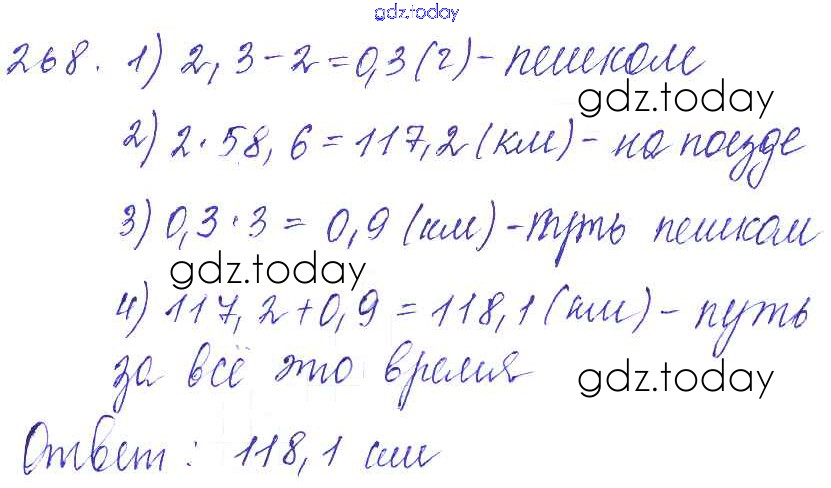 gdz.today
268. 1) 2,3-2=0,3(г)-пешком
gdz.today
2) 2·58,6=117,2(км)-на поезде
3) 0,3·3=0,9(км)-путь пешком
gdz.today
4) 117,2+0,9=118,1(км)-путь
за всё это время
gdz.today
Ответ: 118,1 км